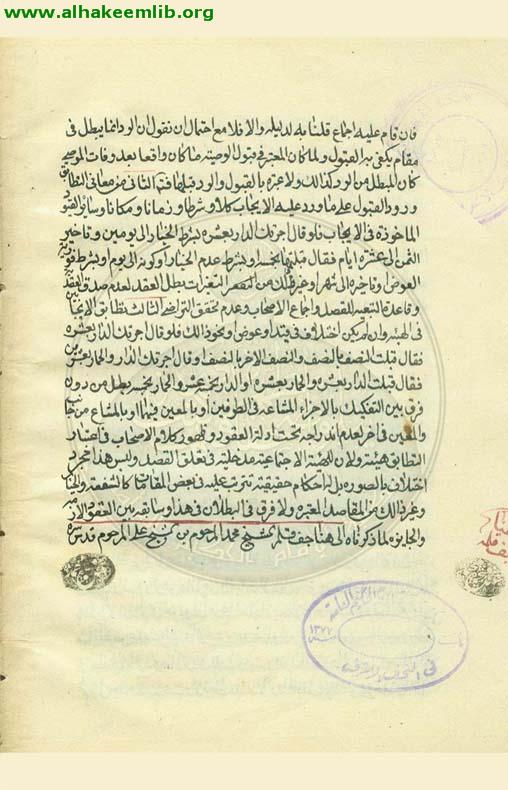 www.alhakeemlib.org
فان قام عليه اجماع قلنا به لدليله والا فلا مع احتمال ان نقول ان الرد انما يبطل فى
مقام يكفى فيه القبول ولما كان المعتبر فى قبول الوصية ما كان واقعا بعد وفات الموصى
كان المبطل من الرد كذلك ولا عبرة بالقبول والرد قبلها فتم الثانى من معانى التطابق
ورود القبول على ما ورد عليه الايجاب كلا وشرطا وزمانا ومكانا وسائر القيود
الماخوذة فى الايجاب فلو قال اجرتك الدار بعشرة بشرط الخيار الى يومين وتاخير
الثمن الى عشرة ايام فقال قبلتها بخمسة وبشرط عدم الخيار او كونه الى يوم او بشرط فورية
العوض او تاخره الى شهر او غير ذلك من التغيرات بطل العقد لعدم صدق العقد
وقاعدة التبعية للقصد واجماع الاصحاب وعدم تحقق التراضى الثالث تطابق الايجاب
فى الهيئة وان لم يكن اختلاف فى قيد او عوض او نحو ذلك فلو قال اجرتك الدار بعشرة
فقال قبلت النصف بالنصف والنصف الاخر بالنصف او قال اجرتك الدار والحمار بعشرين
فقال قبلت الدار بعشرة والحمار بعشرة او الدار بخمسة عشر والحمار بخمسة بطل من دون
فرق بين التفكيك بالاجزاء المشاعة فى الطرفين او بالمعين فيهما او بالمشاع من جانب
والمعين فى اخر لعدم اندراجه تحت ادلة العقود وظهور كلام الاصحاب فى اعتبار
التطابق هيئة ولان للهيئة الاجتماعية مدخلية فى تعلق القصد وليس هذا مجرد
اختلاف بالصورة بل له احكام حقيقية تترتب عليه فى بعض المقامات كالشفعة والخيار
وغير ذلك من المقاصد المعتبرة ولا فرق فى البطلان فى هذا وسابقه بين العقود اللازمة
والجايزة لما ذكرناه الى هنا جف قلم الشيخ محمد المرحوم بن الشيخ على المرحوم قدس سره
١٣٧٧
فى النجف الاشرف